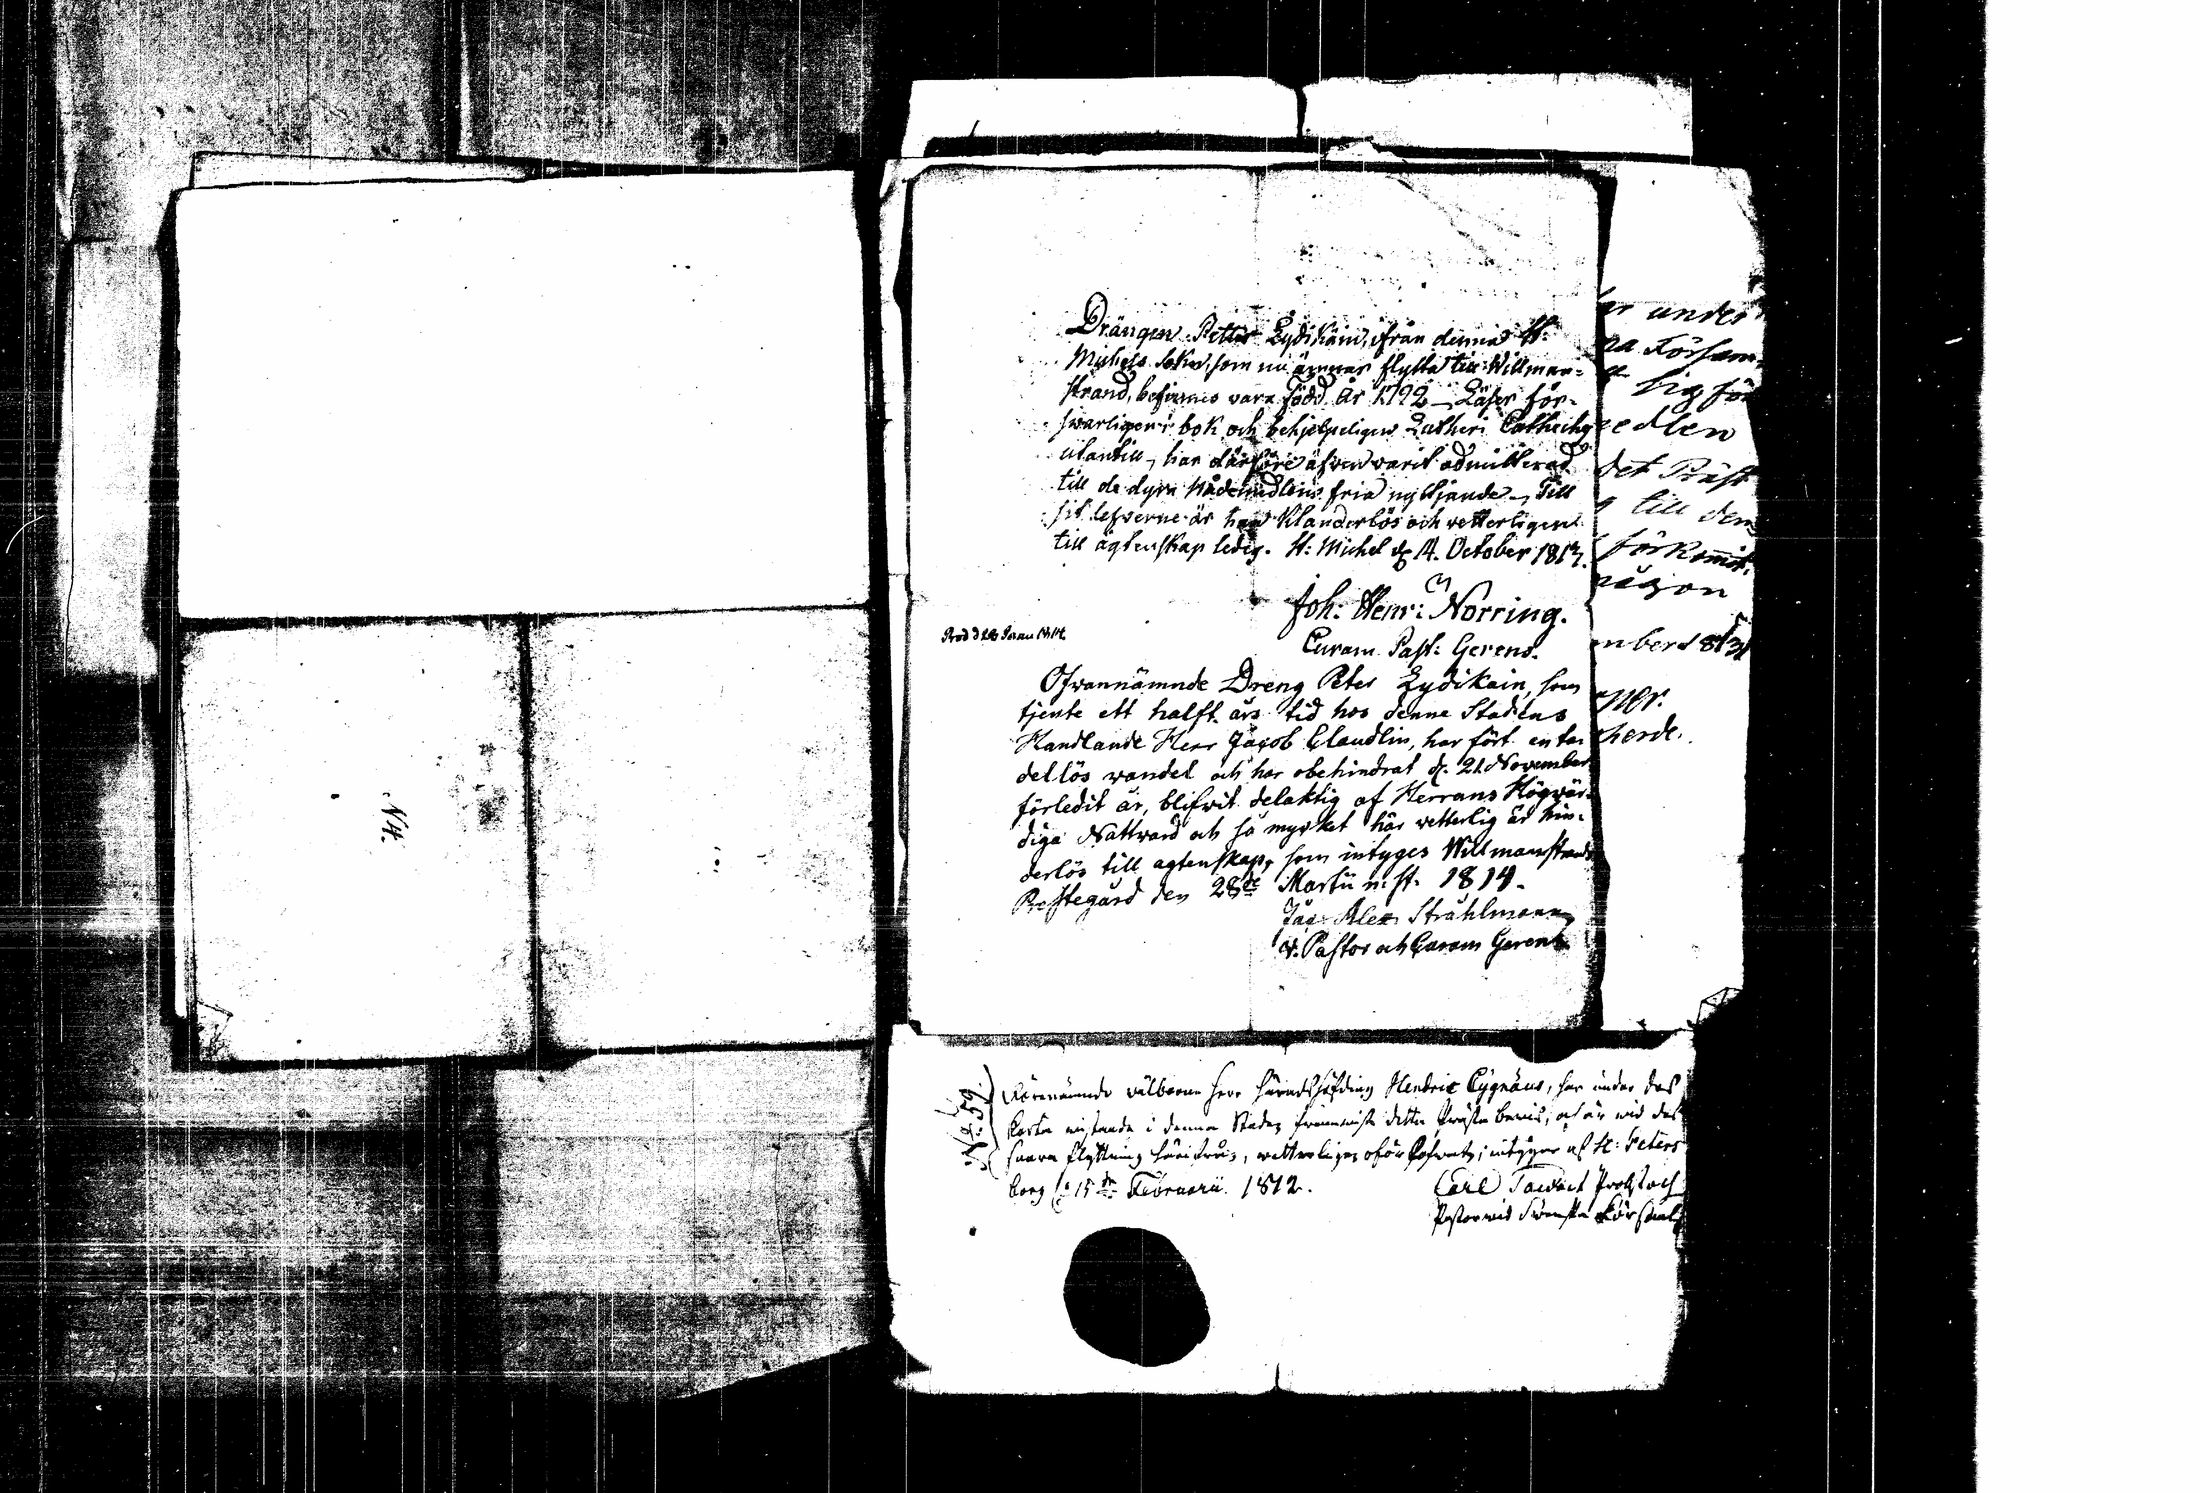 Drängen Petter Lydikäin, ifrån denna St:
Michels Sokn, som nu ämnar flytta till Willman-
strand, befinnes vara född år 1792 – Läser för-
swarligen i bok och behjelpeligen Lutheri Cathechs
utantill, har därföre äfwen varit admitterad
till de dyra Nådemedlens fria nyttjande – Till
sit lefwerne är han Klanderlös och vetterligen
till ägtenskap ledig. St: Michel d. 14. October 1812.
Joh: Henr: Norring.
Curam Past: Gerens.
Prod d 26 Janu 1814
Ofwannämnde Dreng Peter Lydikain, som
tjente ett halft års tid hos denne Stadens
Handlande Herr Jacob Claudlin, har fört en ta-
dellös wandel och har obehindrat d. 21 November
förledit år, blifwit delaktig af Herrans Högwär-
diga Nattward och så mycket här vetterlig är hin-
derlös till ägtenskap, som intyges Willmanstrands
Prestegård den 28de Martii n: st. 1814.
Jac. Alex. Stråhlmann
v. Pastor och Curam Gerens
er under
na Försam-
sig för
edlen
det Präst
till den
förkomit,
någon
mber 1813
ner.
herde.
N 4.
No 59.
Förenämnde välborne Herr Häradshöfding Hendric Cygnäus, har under dess
korta vistande i denna Stad, detta Präste bewis, och är wid dess
snara flyttning härifrån, vetterligen; intygar af St: Peters
borg d: 15de Februarii 1812.
Carl Tawast Probst och
Pastor wid Swenska Församl